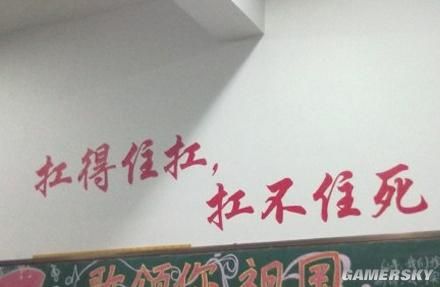 扛得住扛，
扛不住死
歌颂你 祖国
GAMERSKY